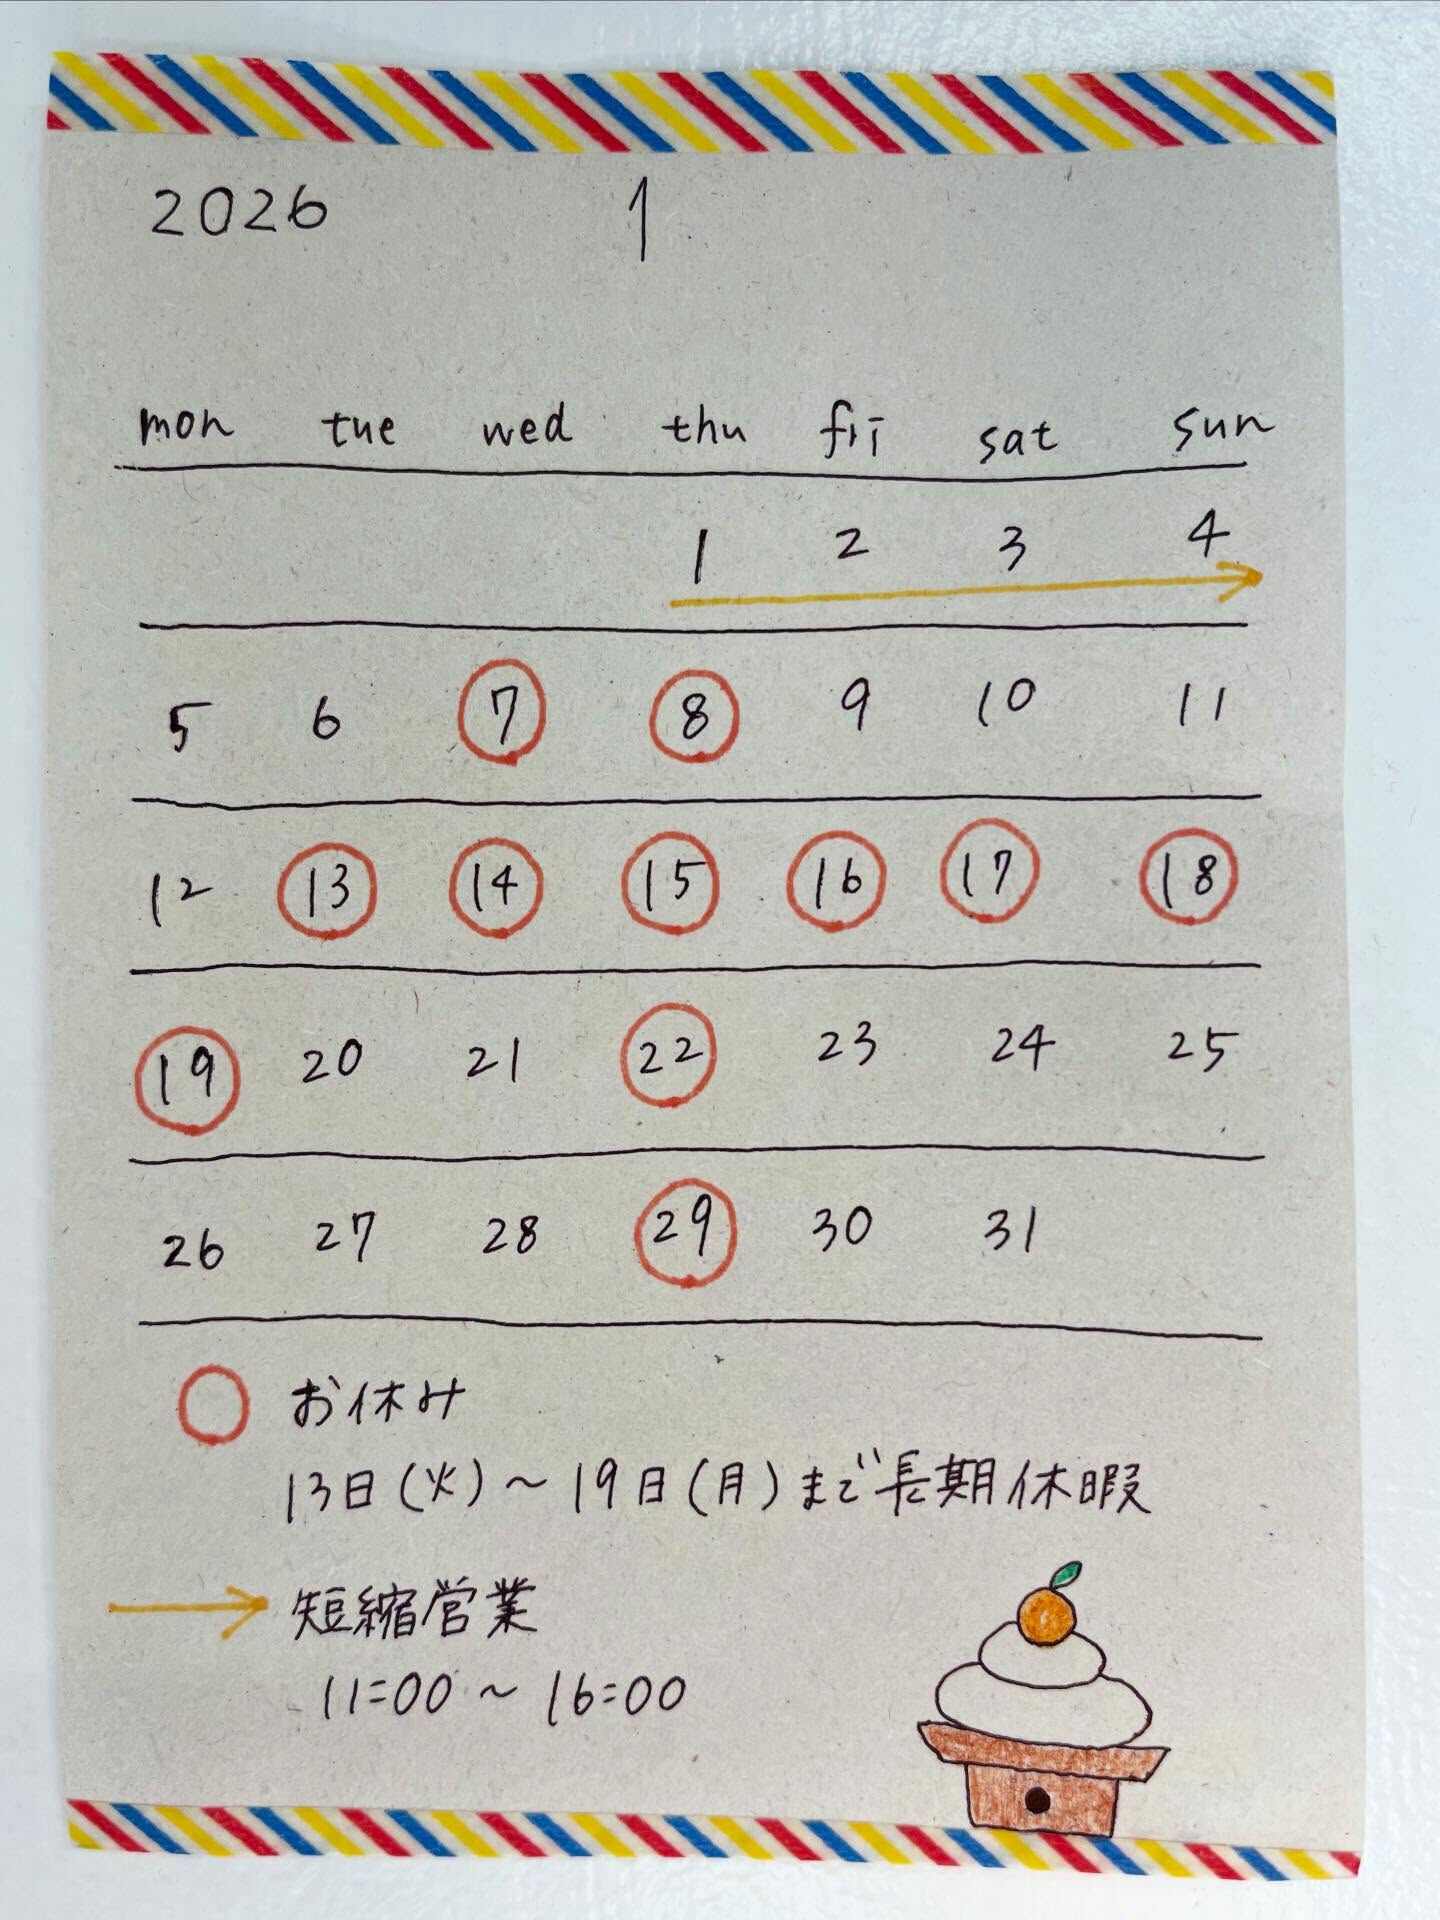 2026 1
mon tue wed thu fri sat sun
1 2 3 4
5 6 7 8 9 10 11
12 13 14 15 16 17 18
19 20 21 22 23 24 25
26 27 28 29 30 31
お休み
13日(火)~19日(月)まで長期休暇
短縮営業
11:00~16:00